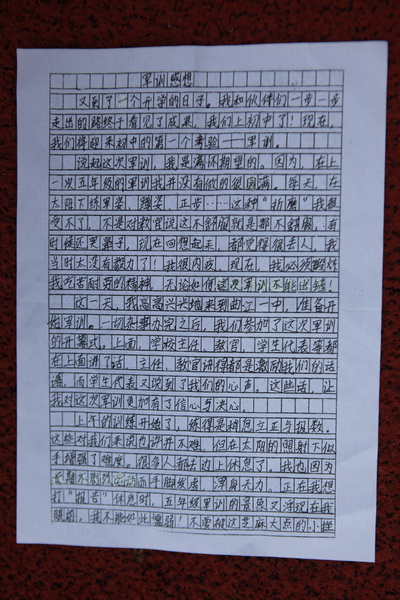 军训感想
又到了一个开学的日子。我和伙伴们一步一步
走出的路终于看见了成果,我们上初中了!现在,
我们得迎来初中的第一个考验——军训。
说起这次军训,我是满怀期望的。因为,在上
一次五年级的军训我并没有做的很圆满。每天,在
太阳下练军姿、蹲姿、正步……这种“折磨”我根
受不了,不是对教官说这不舒服就是那不舒服,有
时候还哭鼻子,现在回想起来,都觉得很丢人,我
当时太没有毅力了!我很内疚。现在,我必须锻炼
我吃苦耐劳的精神,无论如何这次军训不能出错!
这一天,我高高兴兴地来到曲江一中,准备开
始军训。一切杂事办完之后,我们参加了这次军训
的开幕式。上面,学校主任、教官、学生代表等都
在上面讲了话,主任、教官讲得都是激励我们的话
语,而学生代表又说到了我们的心声,这些话,让
我对这次军训更加有了信心与决心。
上午的训练开始了,练得是稍息立正与报数。
这些对我们来说也许并不难,但在太阳的照射下似
乎增强了难度。很多人都去边上休息了,我也因为
长期不剧烈运动而手脚发虚,浑身无力。正在我想
打“报告”休息时,五年级军训的景象又浮现在我
眼前,我不能如此懦弱!不要做这芝麻大点的小挫